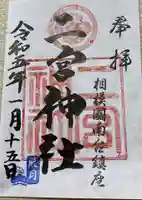 奉拝
相模國南信鎮座
二宮神社
令和五年一月十五日